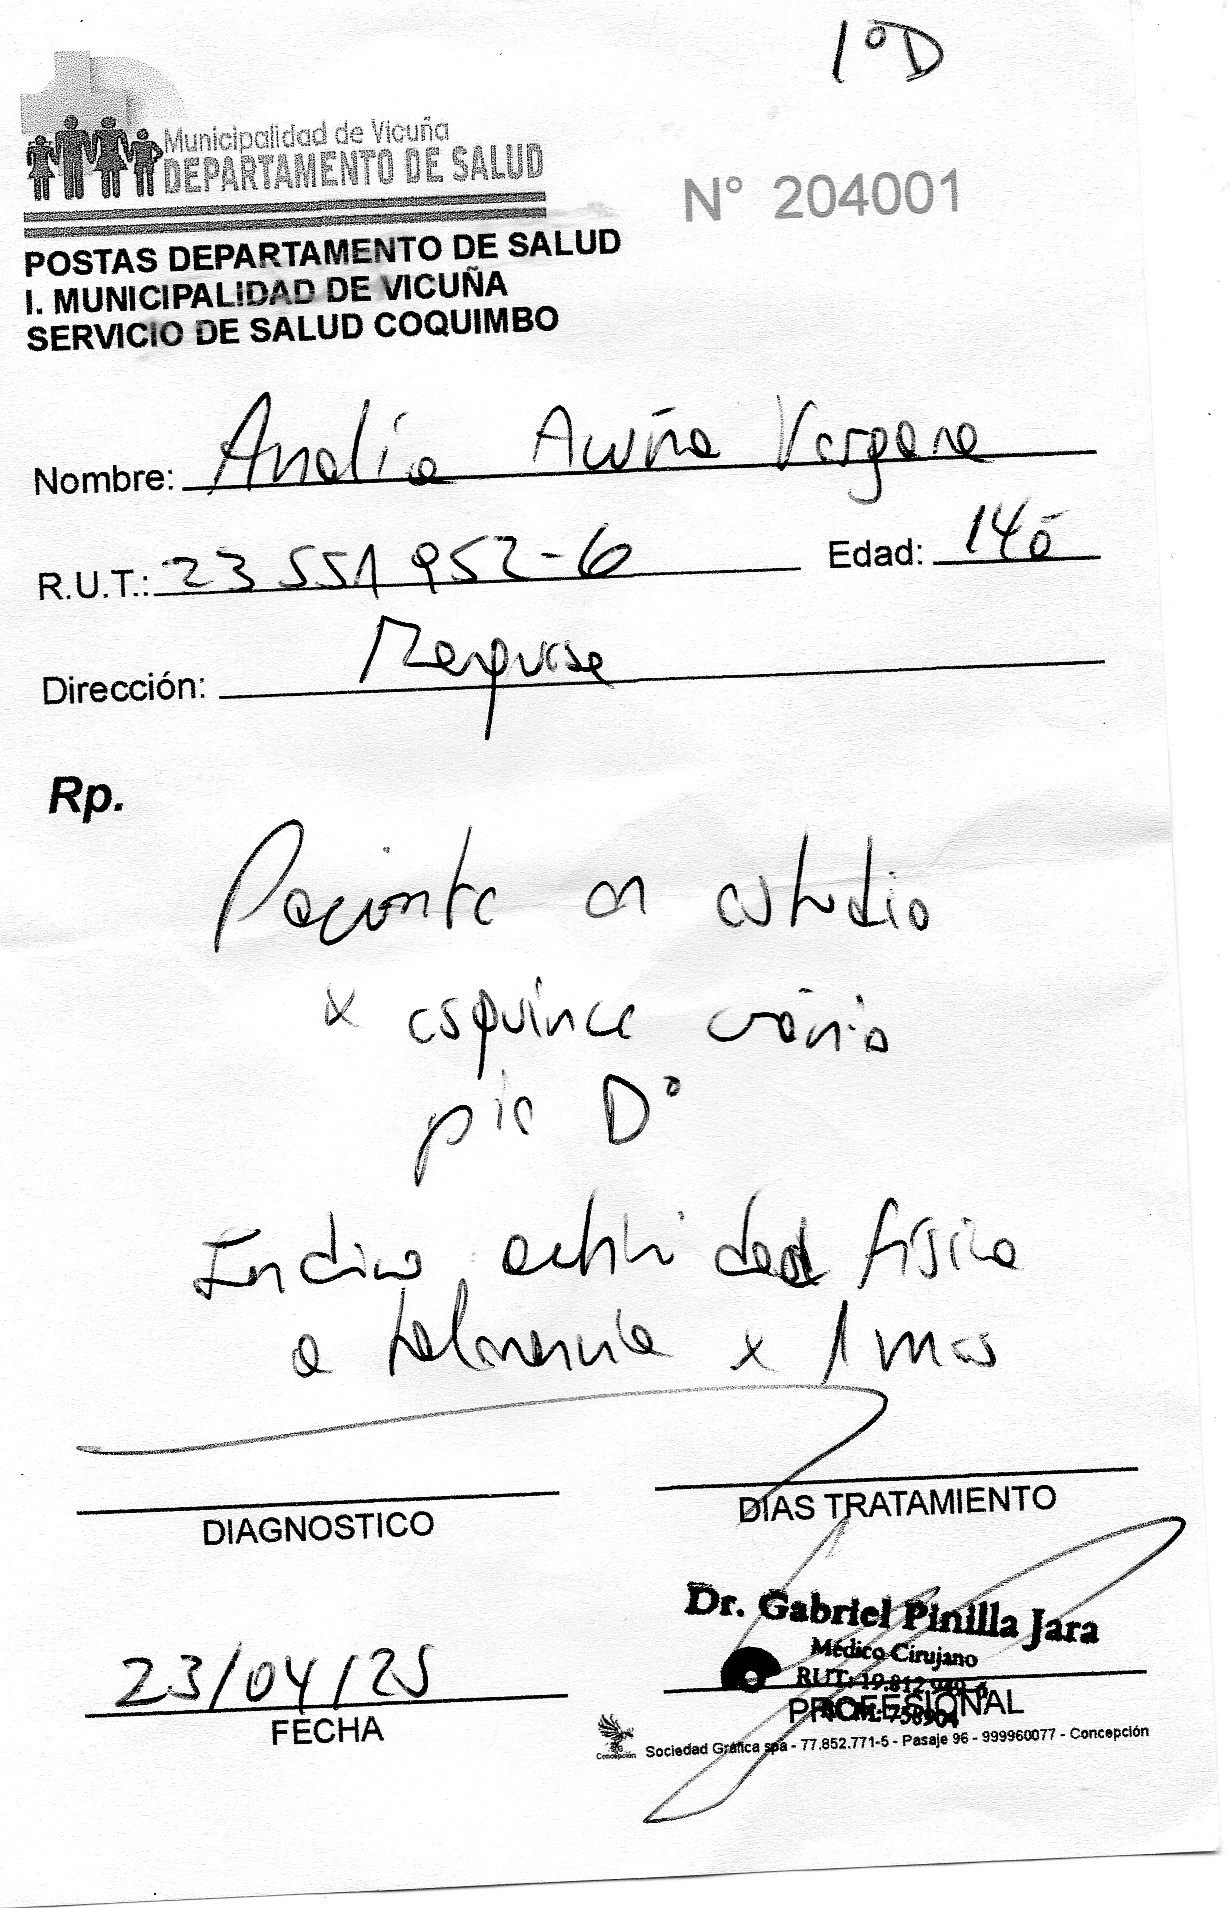 1°D
Municipalidad de Vicuña
DEPARTAMENTO DE SALUD
N° 204001
POSTAS DEPARTAMENTO DE SALUD
I. MUNICIPALIDAD DE VICUÑA
SERVICIO DE SALUD COQUIMBO
Nombre: Analía Acuña Vergara
R.U.T.: 23 551 952-6 Edad: 14ã
Dirección:
Rp.
Paciente en estudio
x esguince
pie D°
Indico actividad física
a tolerancia x 1 mes
DIAGNOSTICO
DIAS TRATAMIENTO
Dr. Gabriel Pinilla Jara
Médico Cirujano
RUT: 19.812.
23/04/25
FECHA
PROFESIONAL
Concepción
Sociedad Gráfica spa - 77.852.771-5 - Pasaje 96 - 999960077 - Concepción